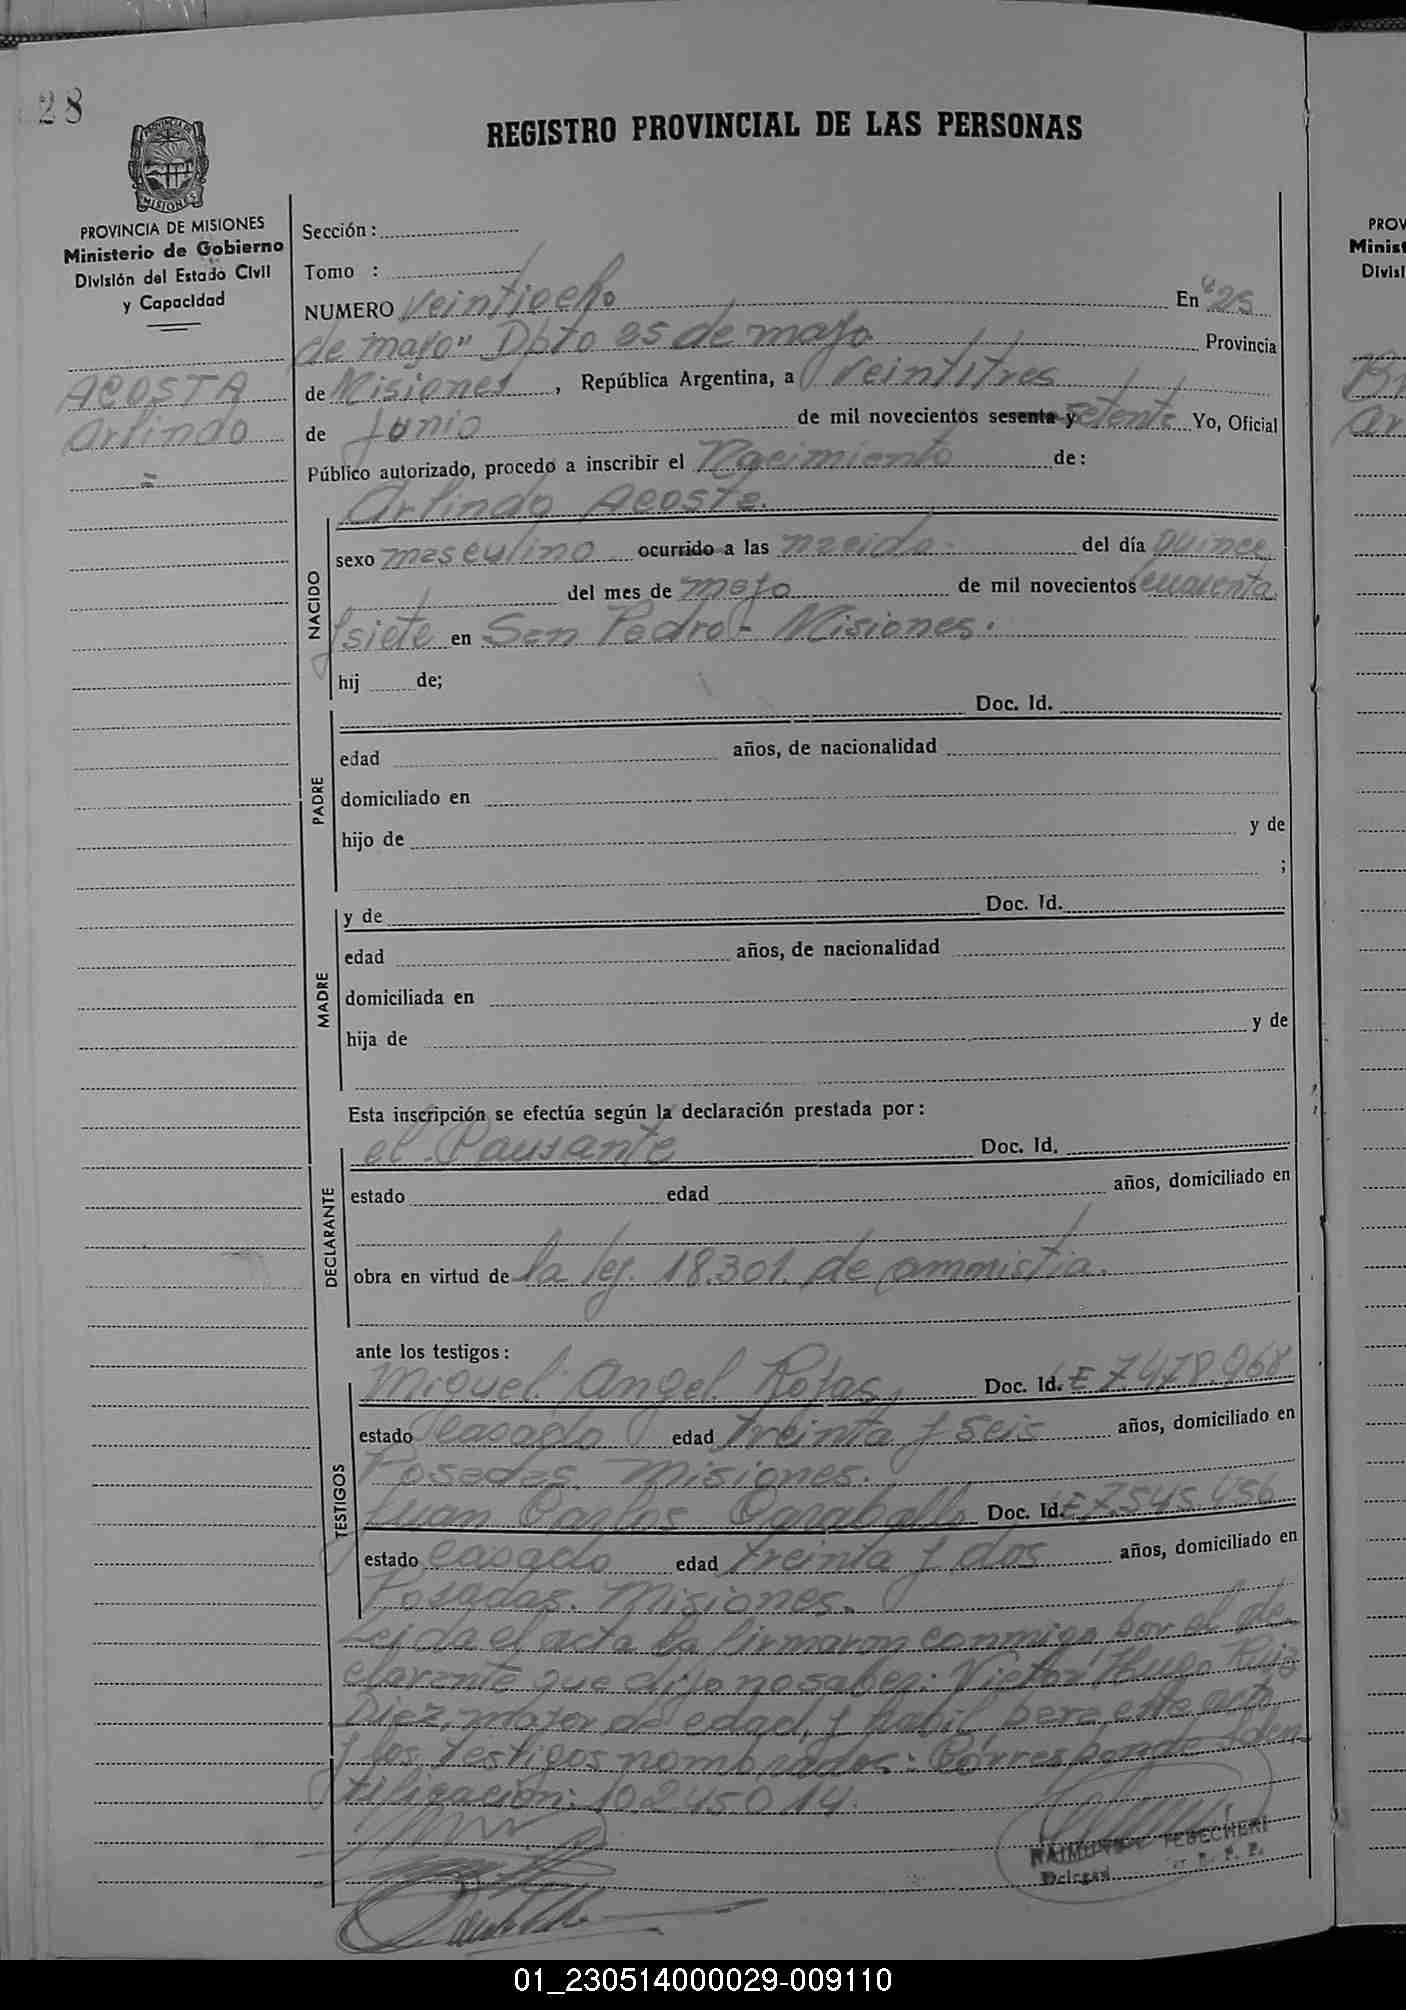 28
REGISTRO PROVINCIAL DE LAS PERSONAS
PROVINCIA DE MISIONES
Ministerio de Gobierno
División del Estado Civil
y Capacidad
ACOSTA
Arlindo
=
Sección :
Tomo :
NUMERO Veintiocho En "25
de mayo" Dpto 25 de mayo Provincia
de Misiones , República Argentina, a Veintitres
de Junio de mil novecientos sesenta y setenta Yo, Oficial
Público autorizado, procedo a inscribir el Nacimiento de:
Arlindo Acosta.
NACIDO
sexo masculino ocurrido a las nacido del día quince
del mes de mayo de mil novecientos cuarenta
y siete en San Pedro - Misiones.
hij de;
PADRE
Doc. Id.
edad años, de nacionalidad
domiciliado en
hijo de y de
;
MADRE
y de Doc. Id.
edad años, de nacionalidad
domiciliada en
hija de y de
Esta inscripción se efectúa según la declaración prestada por:
DECLARANTE
el Causante Doc. Id.
estado edad años, domiciliado en
obra en virtud de la ley. 18.301. de amnistia.
ante los testigos:
TESTIGOS
Miguel Angel Rojas, Doc. Id. LE 7.478.968
estado casado edad treinta y seis años, domiciliado en
Posadas. Misiones.
Juan Carlos Doc. Id. LE 7.545.456
estado casado edad treinta y dos años, domiciliado en
Posadas. Misiones.
Leida el acta la firmaron conmigo por el de-
clarante que dijo no saber: Victor Hugo Ruiz
Diez, mayor de edad, y habil para este acto
y los testigos nombrados: Corresponde Iden-
tificación: 10.245.014.
RAIMUNDO
Delegado
PROV
Minist
Divisi
01_230514000029-009110